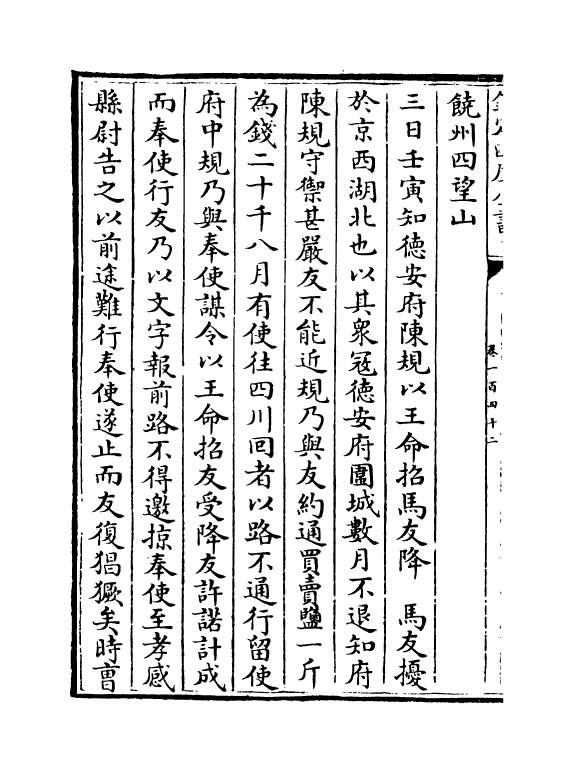 卷一百四十二
饒州四望山
三日壬寅知徳安府陳規以王命招馬友降　馬友擾
於京西湖北也以其衆冦徳安府圍城數月不退知府
陳規守禦甚嚴友不能近規乃與友約通買賣鹽一斤
為錢二十千八月有使往四川回者以路不通行留使
府中規乃與奉使謀令以王命招友受降友許諾計成
而奉使行友乃以文字報前路不得邀掠奉使至孝感
縣尉告之以前途難行奉使遂止而友復猖獗矣時曺